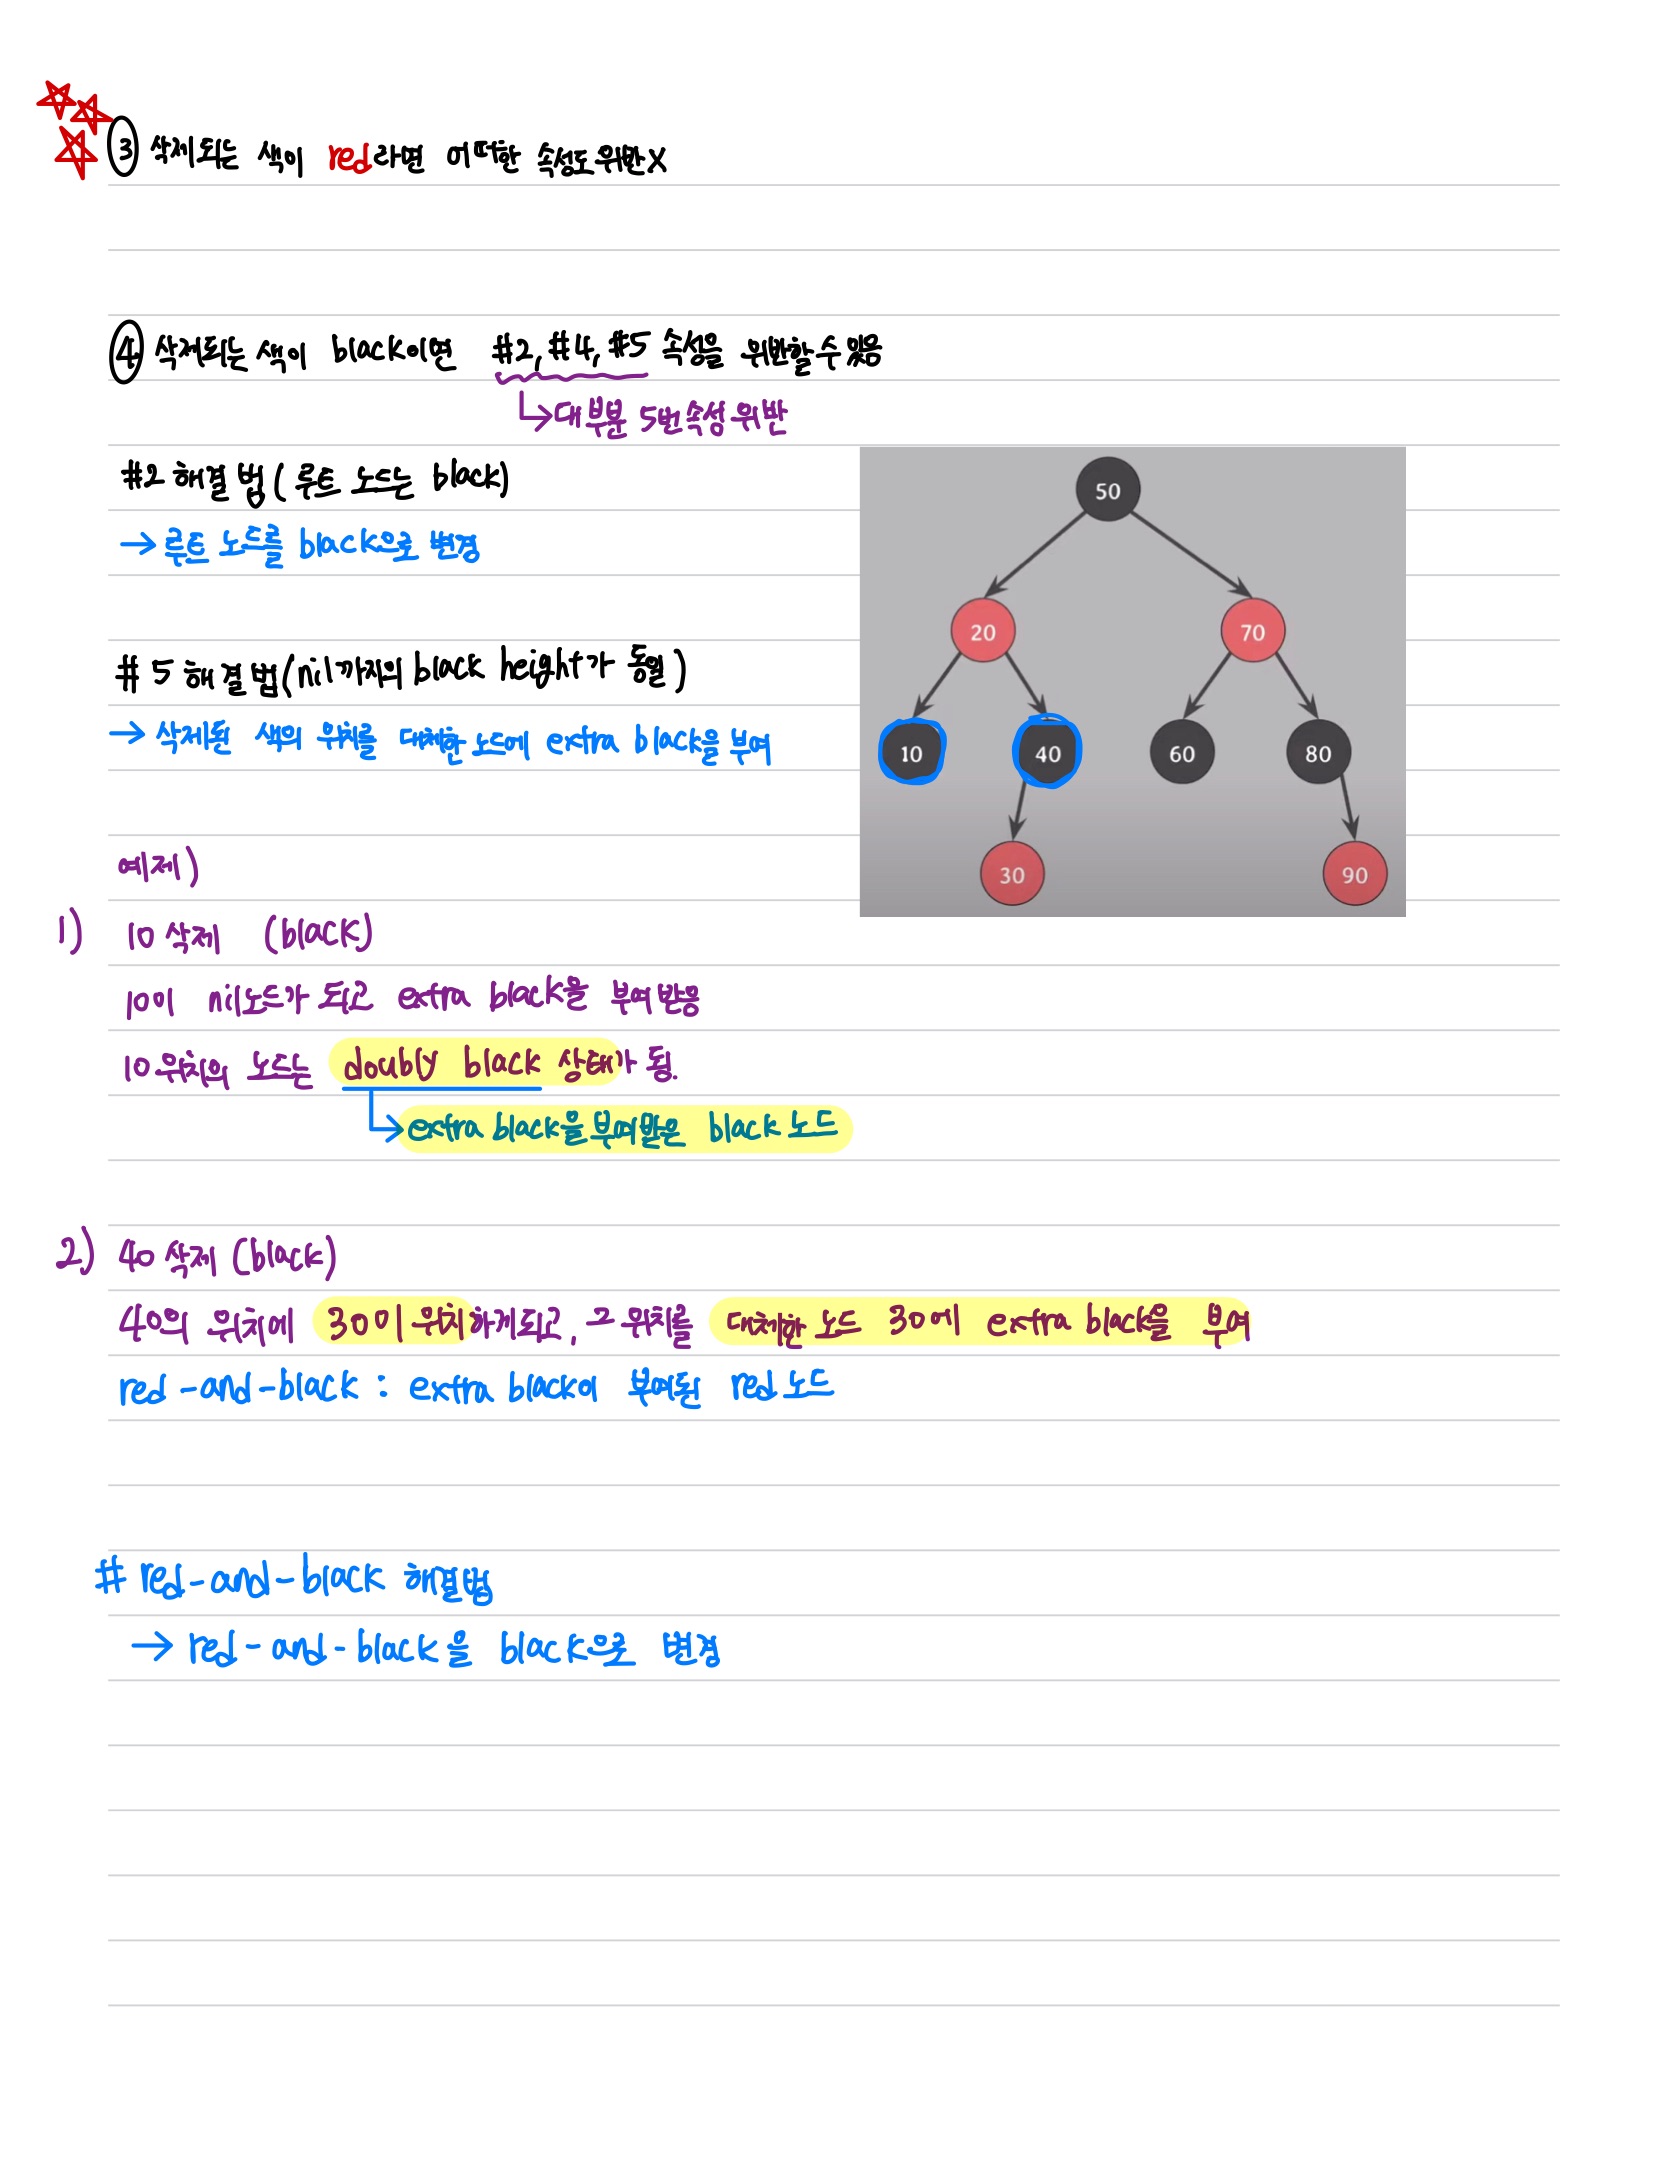 ③ 삭제되는 색이 red라면 어떠한 속성도 위반X
④ 삭제되는 색이 black이면 #2, #4, #5 속성을 위반할 수 있음
↳ 대부분 5번 속성 위반
#2 해결법 (루트 노드는 black)
→ 루트 노드를 black으로 변경
#5 해결법 (nil까지의 black height가 동일)
→ 삭제된 색의 위치를 대체한 노드에 extra black을 부여
50
20 70
10 40 60 80
30 90
예제)
1) 10 삭제 (black)
10이 nil노드가 되고 extra black을 부여받음
10위치의 노드는 doubly black 상태가 됨.
↳ extra black을 부여받은 black 노드
2) 40 삭제 (black)
40의 위치에 30이 위치하게되고, 그 위치를 대체한 노드 30에 extra black을 부여
red-and-black : extra black이 부여된 red 노드
# red-and-black 해결법
→ red-and-black을 black으로 변경